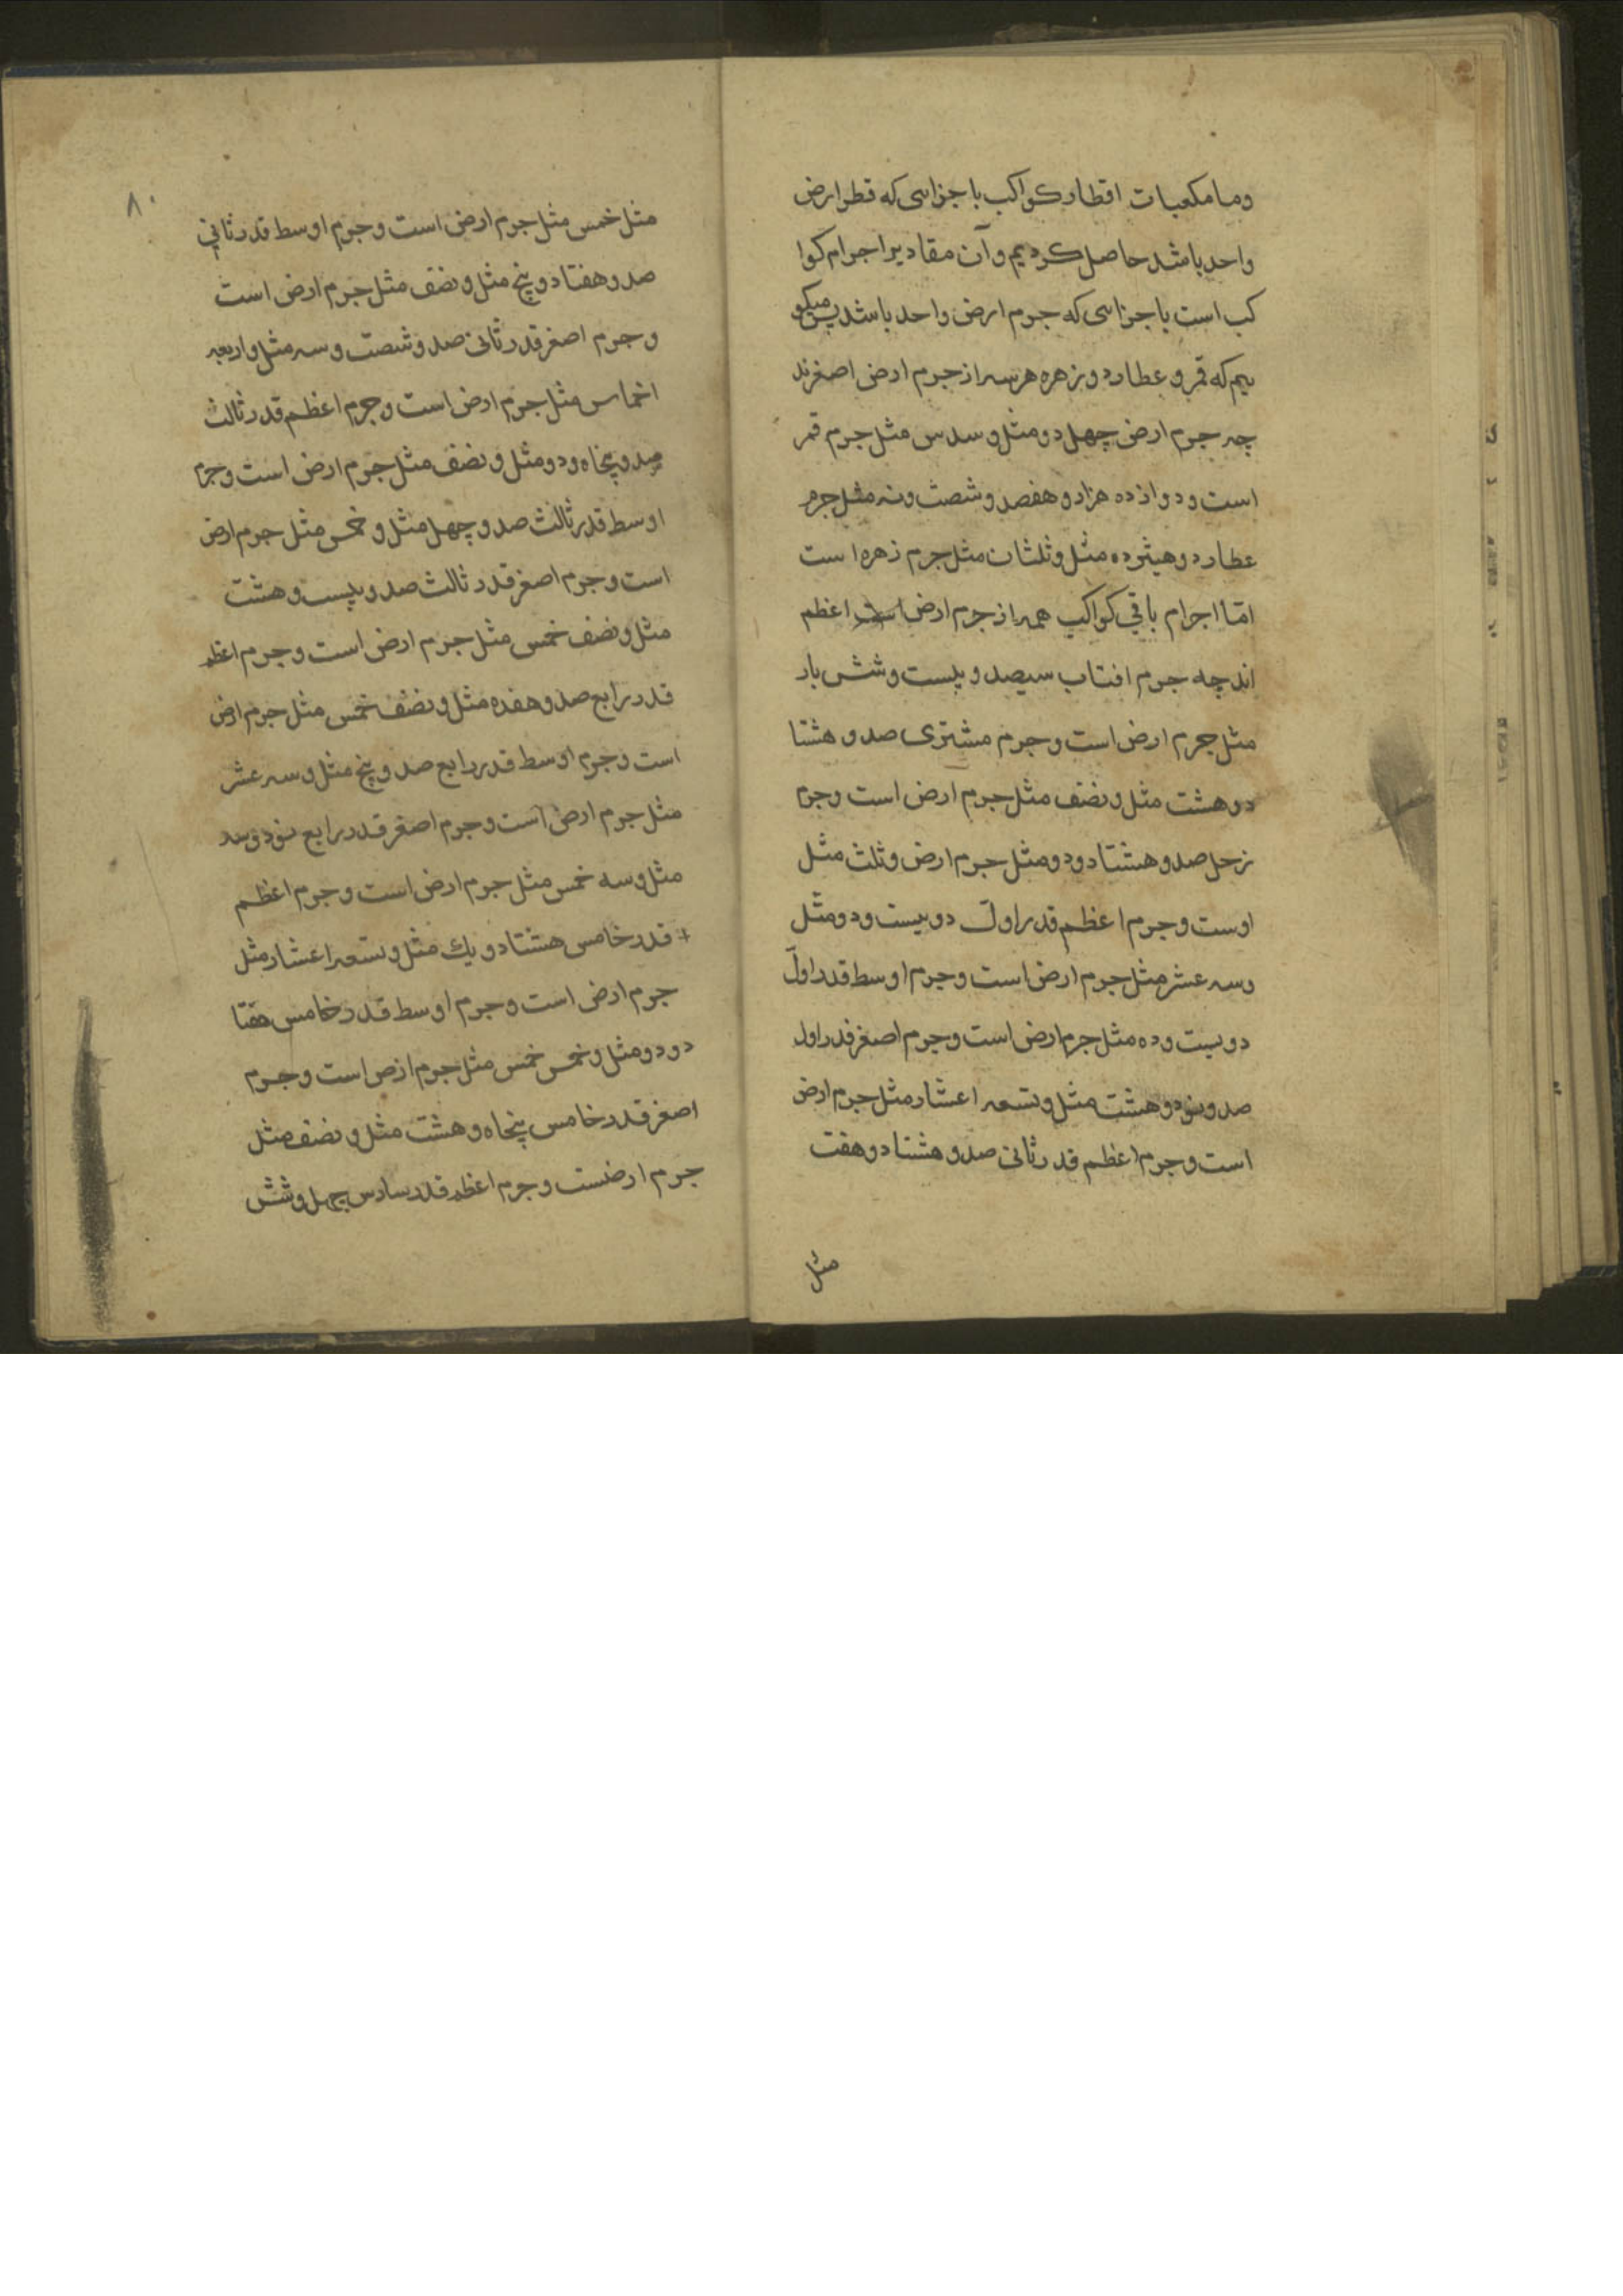 وما مکعبات اقطار کواکب باجزائی که قطر ارض
واحد باشد حاصل کردیم و آن مقادیر اجرام کوا
کب است باجزائی که جرم ارض واحد باشد پس میکو
ییم که قمر و عطارد و زهره هر سه از جرم ارض اصغرند
چه جرم ارض چهل دو مثل و سدس مثل جرم قمر
است و دوازده هزار و هفصد و شصت و نه مثل جرم
عطارد و هیژده مثل و ثلثان مثل جرم زهره است
امّا اجرام باقی کواکب همه از جرم ارض است اعظم
اند چه جرم افتاب سیصد و بیست و شش بار
مثل جرم ارض است و جرم مشتری صد و هشتا
د و هشت مثل و نصف مثل جرم ارض است و جرم
زحل صد و هشتاد و دو مثل جرم ارض و ثلث مثل
اوست و جرم اعظم قدر اول دویست و دو مثل
و سه عشر مثل جرم ارض است و جرم اوسط قدر اول
دویست و ده مثل جرم ارض است و جرم اصغر قدر اول
صد و نود و هشت مثل و تسعه اعشار مثل جرم ارض
است و جرم اعظم قدر ثانی صد و هشتاد و هفت
مثل
٨٠
مثل خمس مثل جرم ارض است و جرم اوسط قدر ثانی
صد و هفتاد و پنج مثل و نصف مثل جرم ارض است
و جرم اصغر قدر ثانی صد و شصت و سه مثل و اربعه
اخماس مثل جرم ارض است و جرم اعظم قدر ثالث
صد و پنجاه و دو مثل و نصف مثل جرم ارض است و جرم
اوسط قدر ثالث صد و چهل مثل و خمس مثل جرم ارض
است و جرم اصغر قدر ثالث صد و بیست و هشت
مثل و نصف خمس مثل جرم ارض است و جرم اعظم
قدر رابع صد و هفده مثل و نصف خمس مثل جرم ارض
است و جرم اوسط قدر رابع صد و پنج مثل و سه عشر
مثل جرم ارض است و جرم اصغر قدر رابع نود و سه
مثل و سه خمس مثل جرم ارض است و جرم اعظم
+ قدر خامس هشتاد و یك مثل و تسعه اعشار مثل
جرم ارض است و جرم اوسط قدر خامس هفتا
د و دو مثل و خمس خمس مثل جرم ارض است و جرم
اصغر قدر خامس پنجاه و هشت مثل و نصف مثل
جرم ارضست و جرم اعظم قدر سادس چهل و شش